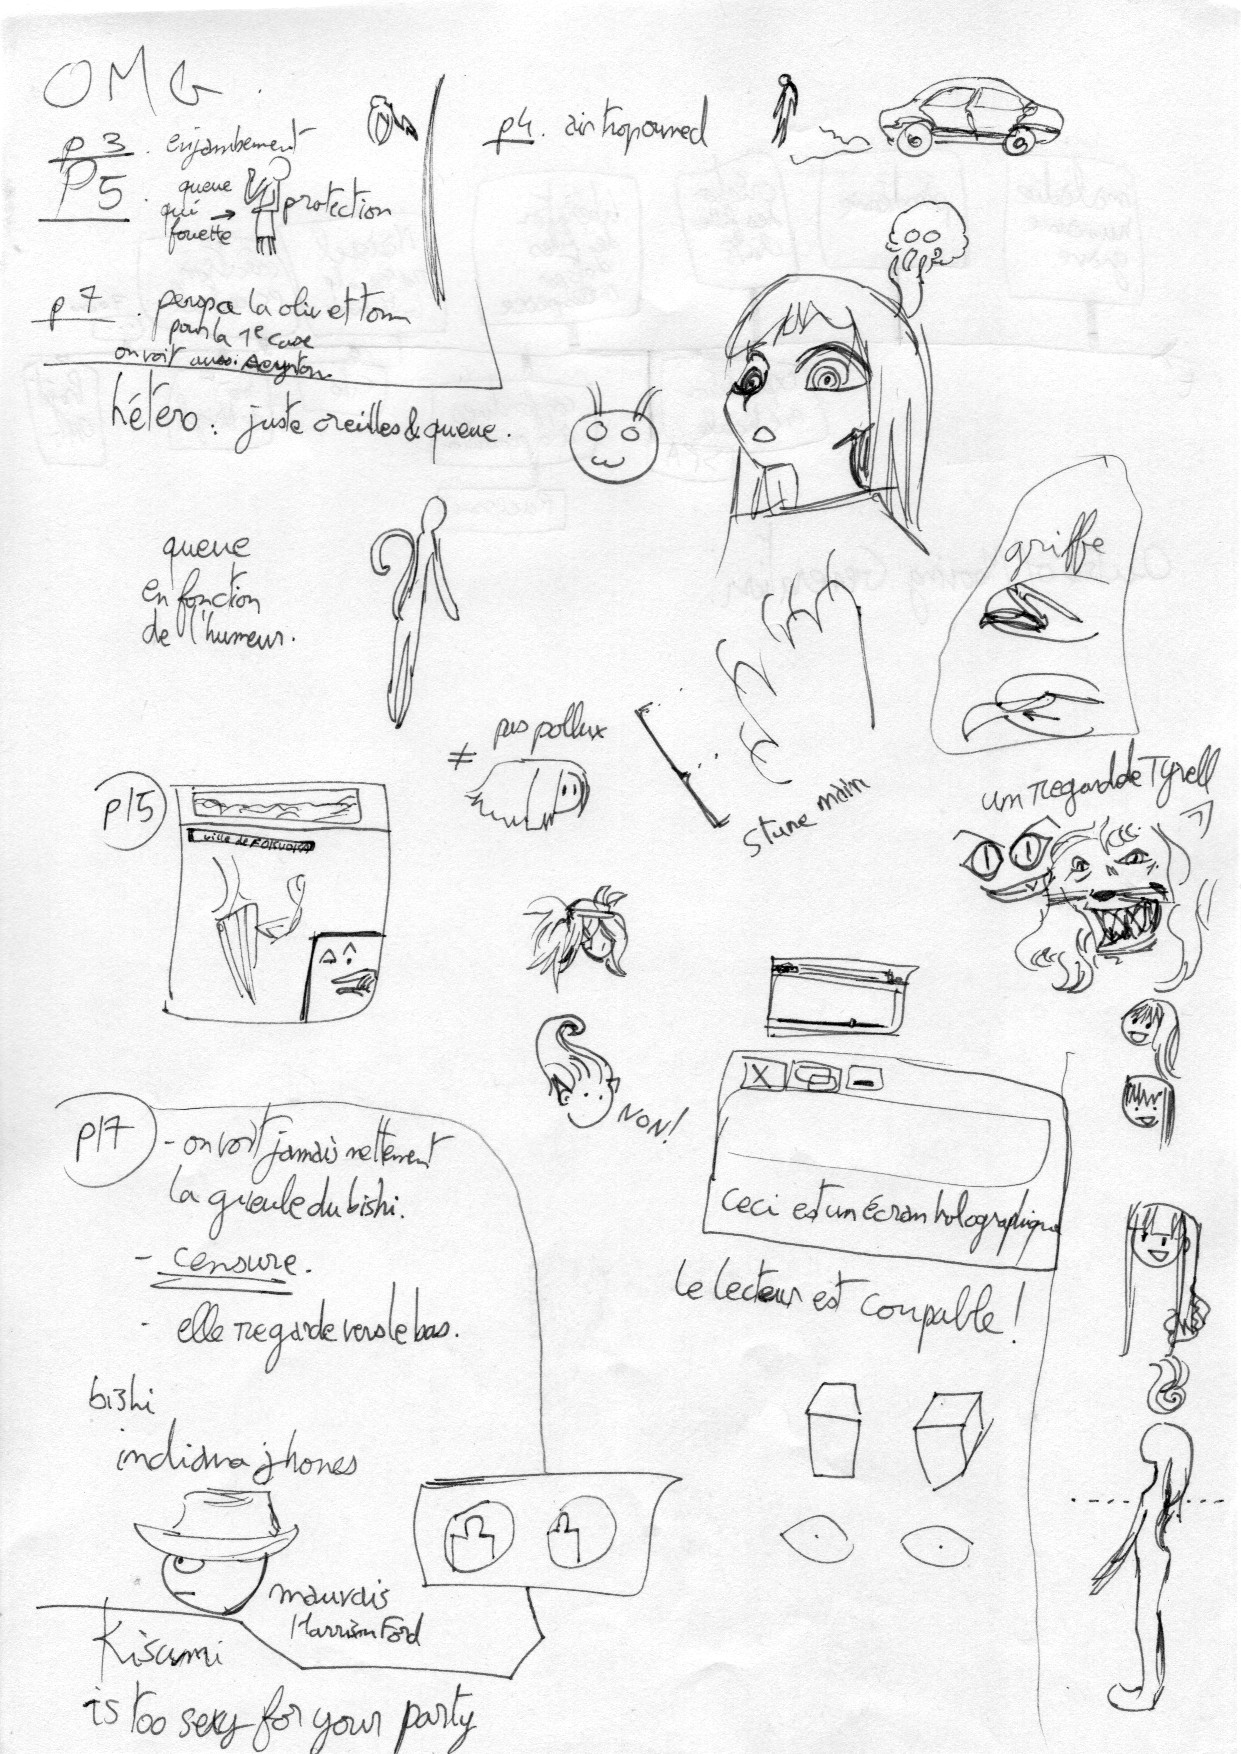 OMG
p3. enjambement
P5. queue
qui
fouette
protection
p4.
p7. la oliv et tom
pour la 1e case
on voit aussi
hétéro: juste oreilles & queue.
queue
en fonction
de l'humeur.
griffe
≠ pas pollux
stune main
un regard de Tyrell
p15
ville de
NON!
X
ceci est un écran holographique
le lecteur est coupable!
p17
- on voit jamais nettement
la gueule du bishi.
- censure.
- elle regarde vers le bas.
bishi
indiana jhones
mauvais
Harrison Ford
Kisumi
is too sexy for your party